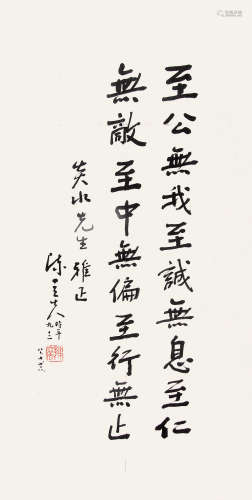 至公無我至誠無息至仁
無敵至中無偏至行無止
炎水先生雅正
陳立夫
時年九三